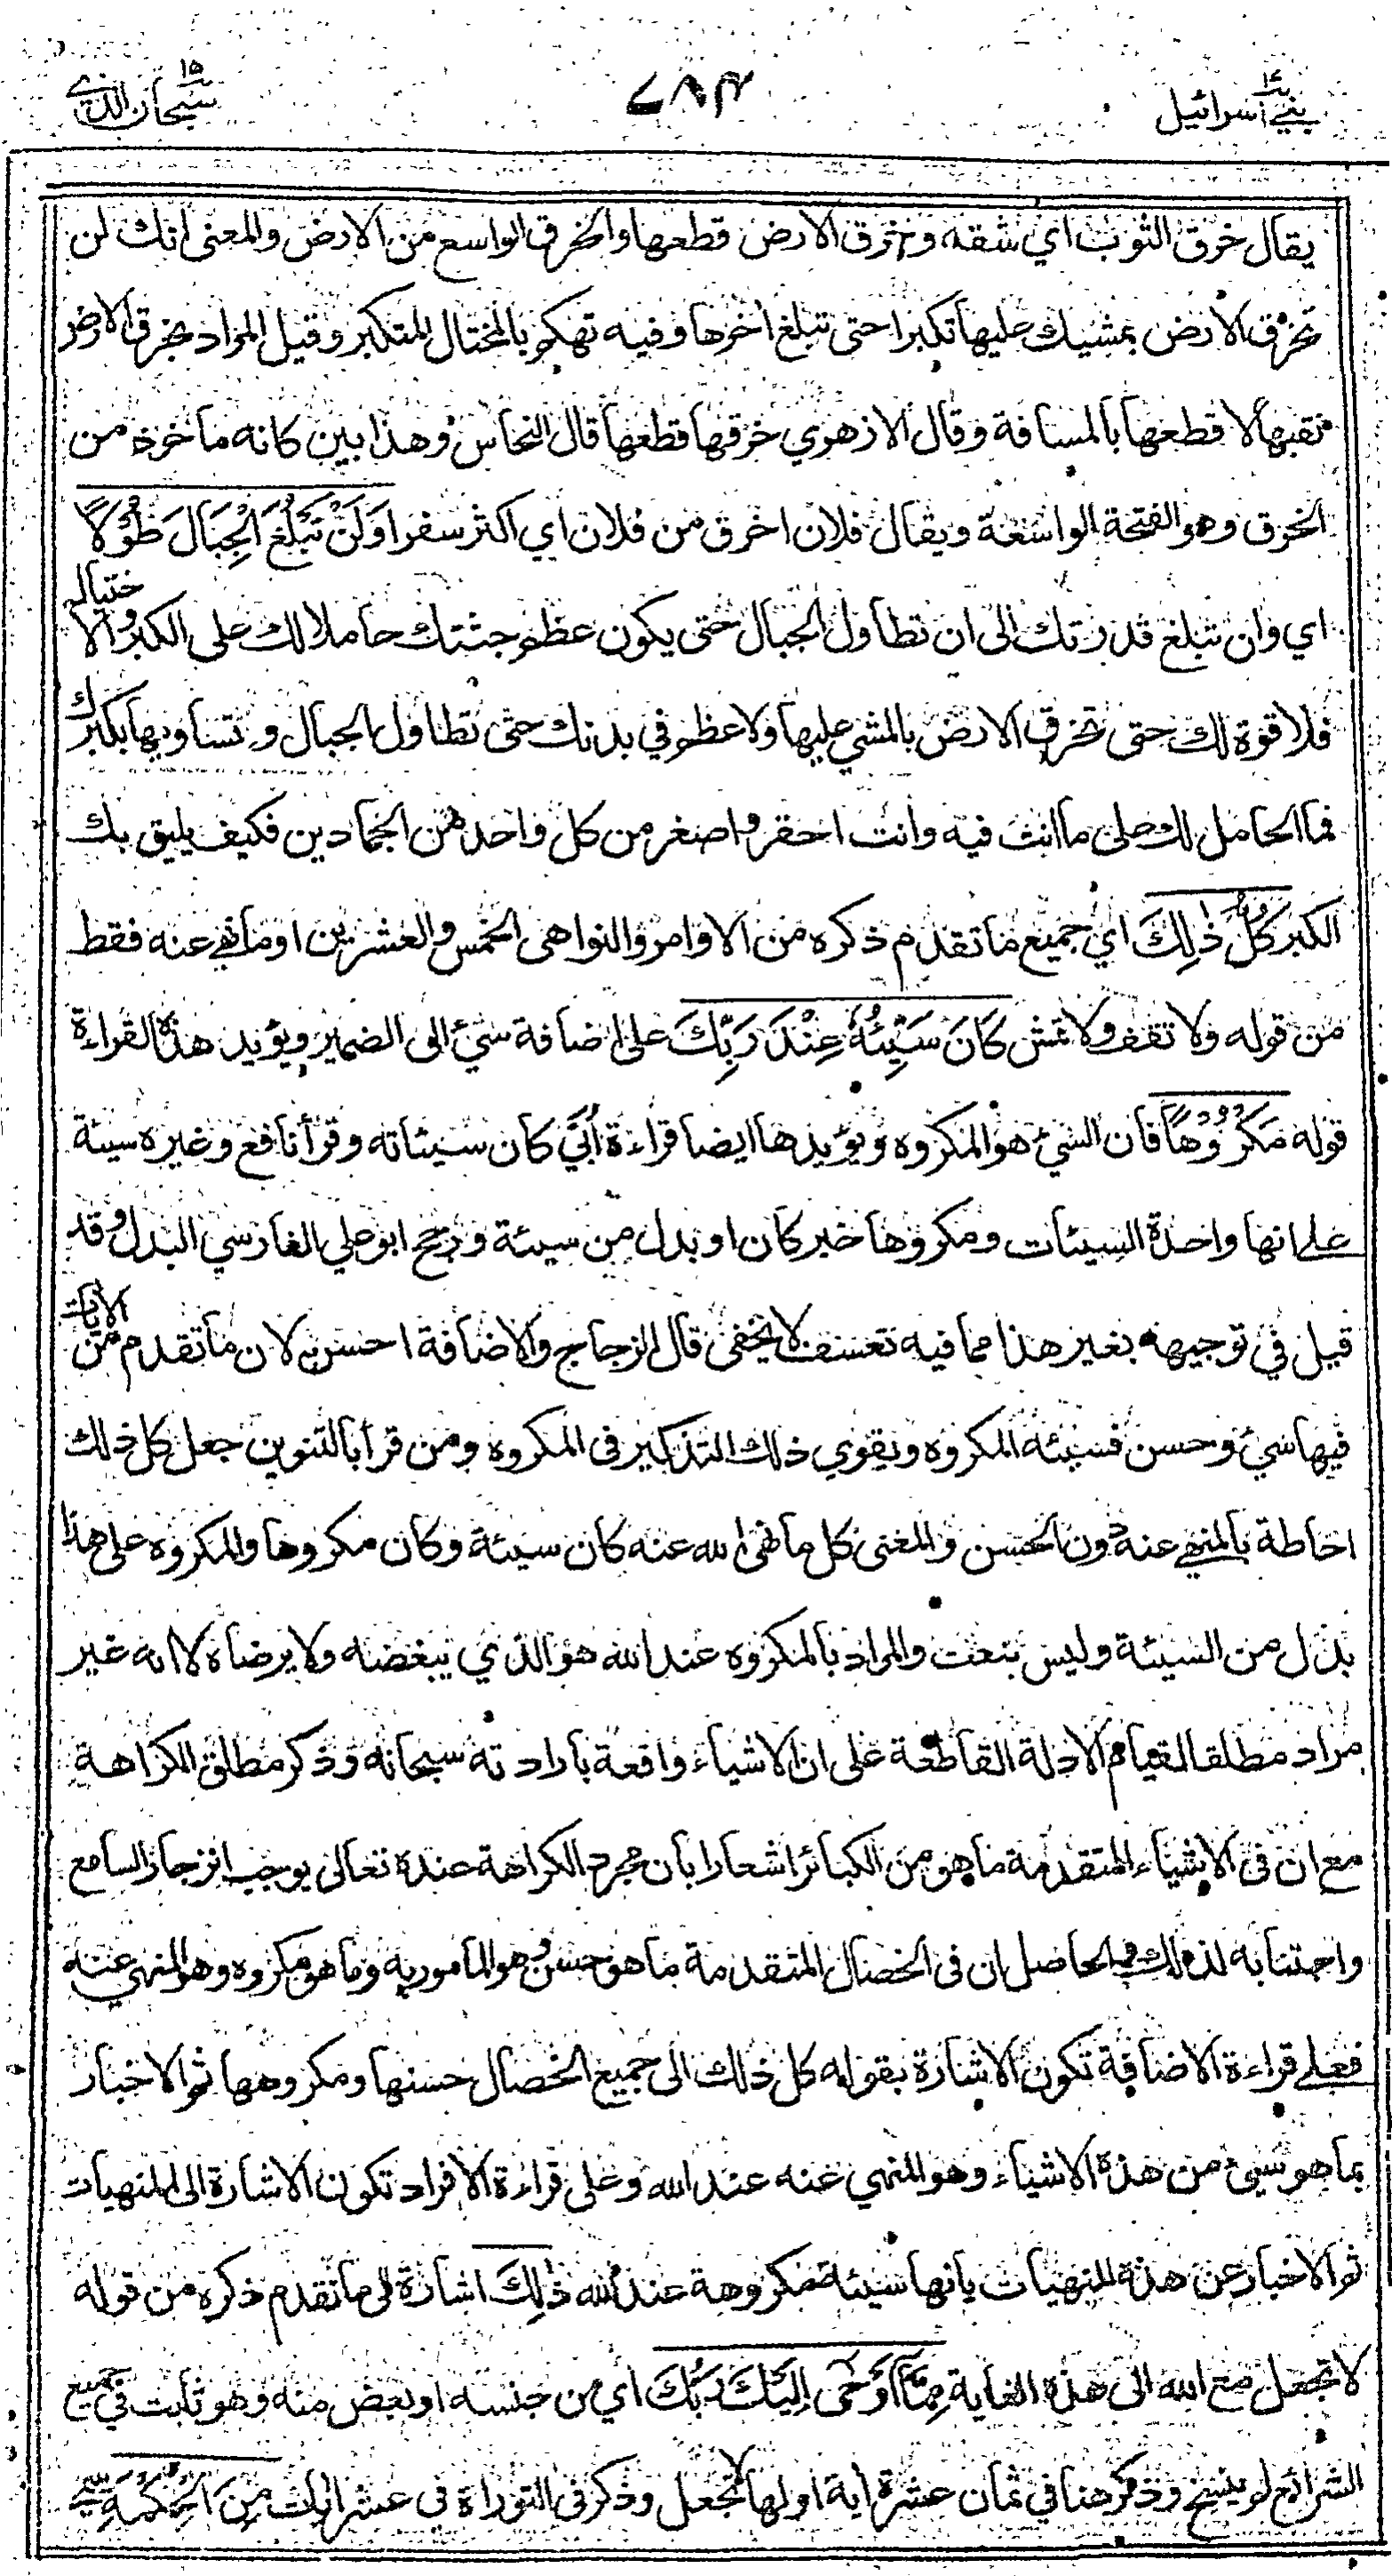 بني اسرائيل ١٧
٧٨٣
سبحان الذي ١٥
يقال خرق الثوب اي شقه وخرق الارض قطعها والخرق الواسع من الارض والمعنى انك لن
تخرق الارض بمشيك عليها تكبرا حتى تبلغ اخرها وفيه تهكم بالمختال المتكبر وقيل المراد بخرق الارض
نقبها لا قطعها بالمسافة وقال الازهري خرقها قطعها قال النحاس وهذا بين كانه ماخوذ من
الخرق وهو الفتحة الواسعة ويقال فلان اخرق من فلان اي اكثر سفرا وَلَنْ تَبْلُغَ الْجِبَالَ طُوْلًا
اي ولن تبلغ قدرتك الى ان تطاول الجبال حتى يكون عظم جثتك حاملا لك على الكبر والاختيال
فلا قوة لك حتى تخرق الارض بالمشي عليها ولا عظم في بدنك حتى تطاول الجبال وتساويها بكبرك
فما الحامل لك على ما انت فيه وانت احقر واصغر من كل واحد من الجمادين فكيف يليق بك
الكبر كُلُّ ذٰلِكَ اي جميع ما تقدم ذكره من الاوامر والنواهى الخمس والعشرين او ما نهي عنه فقط
من قوله ولا تقف ولا تمش كَانَ سَيِّئُهٗ عِنْدَ رَبِّكَ على اضافة سيئ الى الضمير ويؤيد هذه القراءة
قوله مَكْرُوْهًا فان السيئ هو المكروه ويؤيدها ايضا قراءة أُبَيّ كان سيئاته وقرأ نافع وغيره سيئة
على انها واحدة السيئات ومكروها خبر كان او بدل من سيئة ورجح ابو علي الفارسي البدل وقد
قيل في توجيهه بغير هذا مما فيه تعسف لا يخفى قال الزجاج والاضافة احسن لان ما تقدم من الايات
فيها سيئ وحسن فسيئه المكروه ويقوي ذلك التذكير فى المكروه ومن قرأ بالتنوين جعل كل ذلك
احاطة بالمنهي عنه دون الحسن والمعنى كل ما نهى الله عنه كان سيئة وكان مكروها والمكروه على هذا
بدل من السيئة وليس بنعت والمراد بالمكروه عند الله هو الذي يبغضه ولا يرضاه لا انه غير
مراد مطلقا لقيام الادلة القاطعة على ان الاشياء واقعة بارادته سبحانه وذكر مطلق الكراهة
مع ان فى الاشياء المتقدمة ما هو من الكبائر اشعارا بان مجرد الكراهة عنده تعالى يوجب انزجار السامع
واجتنابه لذلك والحاصل ان فى الخصال المتقدمة ما هو حسن وهو المامور به وما هو مكروه وهو المنهي عنه
فعلى قراءة الاضافة تكون الاشارة بقوله كل ذلك الى جميع الخصال حسنها ومكروهها ثم الاخبار
بما هو سيئ من هذه الاشياء وهو المنهي عنه عند الله وعلى قراءة الافراد تكون الاشارة الى المنهيات
ثم الاخبار عن هذه المنهيات بانها سيئة مكروهة عند الله ذٰلِكَ اشارة الى ما تقدم ذكره من قوله
لا تجعل مع الله الى هذه الغاية مِمَّآ اَوْحٰى اِلَيْكَ رَبُّكَ اي من جنسه او بعض منه وهو ثابت في جميع
الشرائع لم ينسخ وذكر هنا في ثمان عشرة اية اولها لا تجعل وذكر فى التوراة فى عشر ايات مِنَ الْحِكْمَةِ